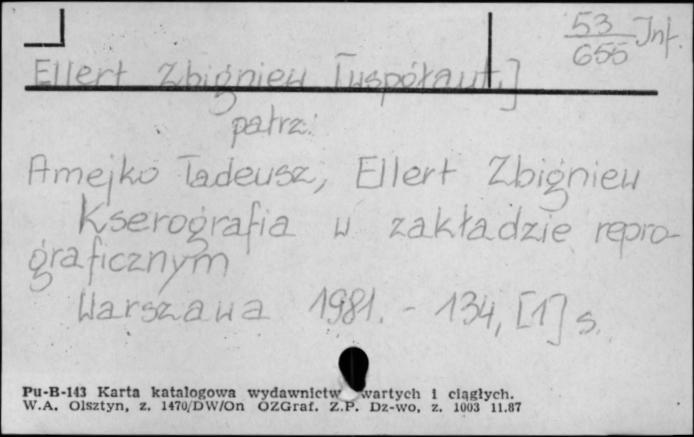 53 Inf.
655
Ellert Zbigniew [współaut.]
patrz:
Amejko Tadeusz, Ellert Zbigniew
Kserografia w zakładzie repro-
graficznym
Warszawa 1981. - 134, [1] s.
Pu-B-143 Karta katalogowa wydawnictw wartych i ciągłych.
W.A. Olsztyn, z. 1470/DW/On OZGraf. Z.P. Dz-wo, z. 1003 11.87